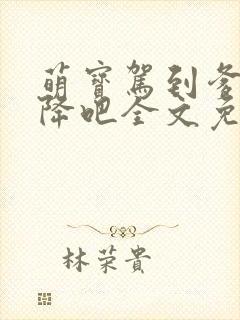 萌寶駕到爹
降吧全文免
林荣貴